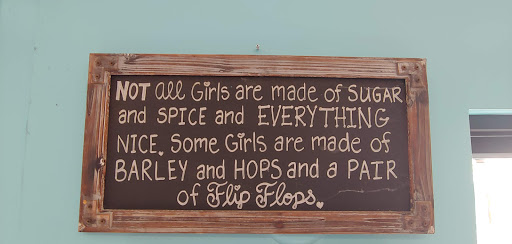 NOT all Girls are made of SUGAR
and SPICE and EVERYTHING
NICE. Some Girls are made of
BARLEY and HOPS and a PAIR
of Flip Flops.